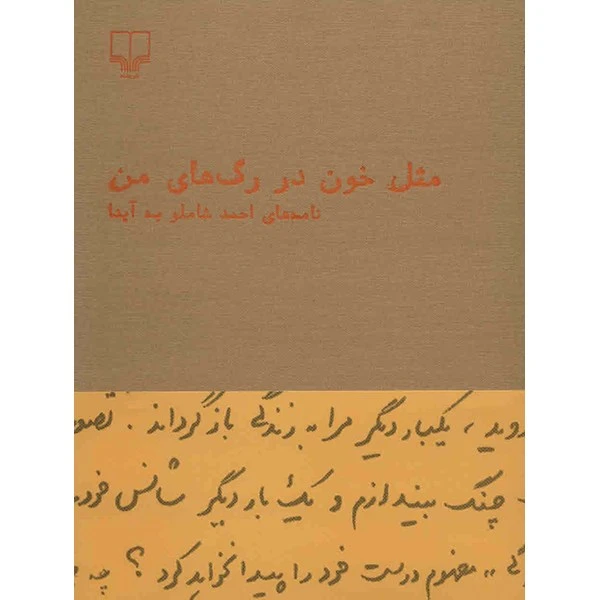 مثل خون در رگ‌های من
نامه‌های احمد شاملو به آیدا
روید، یکبار دیگر مرا به زندگی باز گرداند. تصو
چنگ بیندازم و یک بار دیگر شانس خود
گی» مفهوم درست خود را پیدا نخواهد کرد؟ چه